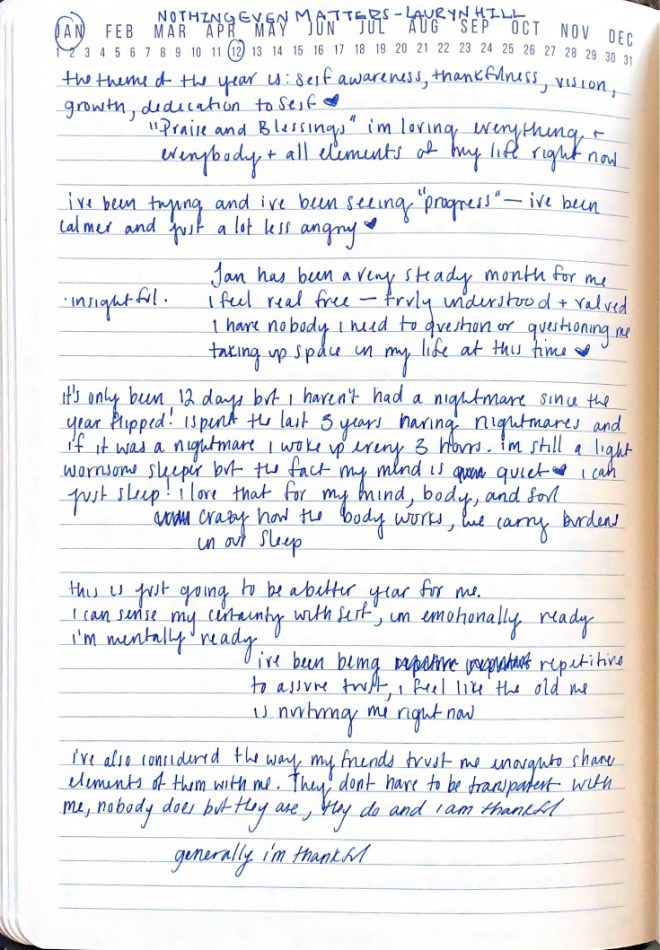 NOTHING EVEN MATTERS - LAURYN HILL
JAN FEB MAR APR MAY JUN JUL AUG SEP OCT NOV DEC
1 2 3 4 5 6 7 8 9 10 11 12 13 14 15 16 17 18 19 20 21 22 23 24 25 26 27 28 29 30 31
the theme of the year is: self awareness, thankfulness, vision,
growth, dedication to self ♥
"Praise and Blessings" i'm loving everything +
everybody + all elements of my life right now
i've been trying and i've been seeing "progress" — i've been
calmer and just a lot less angry ♥
Jan has been a very steady month for me
·insightful. I feel real free — truly understood + valued
I have nobody I need to question or questioning me
taking up space in my life at this time ♥
it's only been 12 days but I haven't had a nightmare since the
year flipped! I spent the last 3 years having nightmares and
if it was a nightmare I woke up every 3 hours. i'm still a light
worrisome sleeper but the fact my mind is quiet ♥ i can
just sleep! I love that for my mind, body, and soul
crazy how the body works, we carry burdens
in our sleep
this is just going to be a better year for me.
I can sense my certainty with self, im emotionally ready
i'm mentally ready
i've been being repetitive
to assure trust, i feel like the old me
is nurturing me right now
i've also considered the way my friends trust me enough to share
elements of them with me. They dont have to be transparent with
me, nobody does but they are, they do and i am thankful
generally i'm thankful